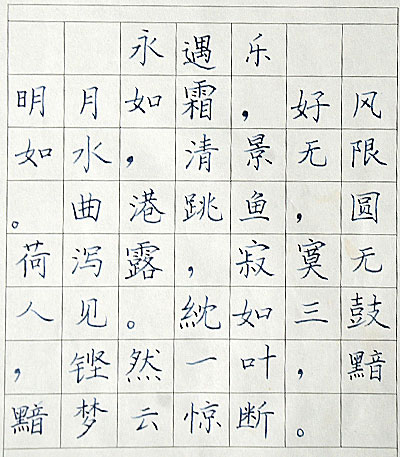 永遇乐
明月如霜，好风
如水，清景无限
。曲港跳鱼，圆
荷泻露，寂寞无
人见。紞如三鼓
，铿然一叶，黯
黯梦云惊断。